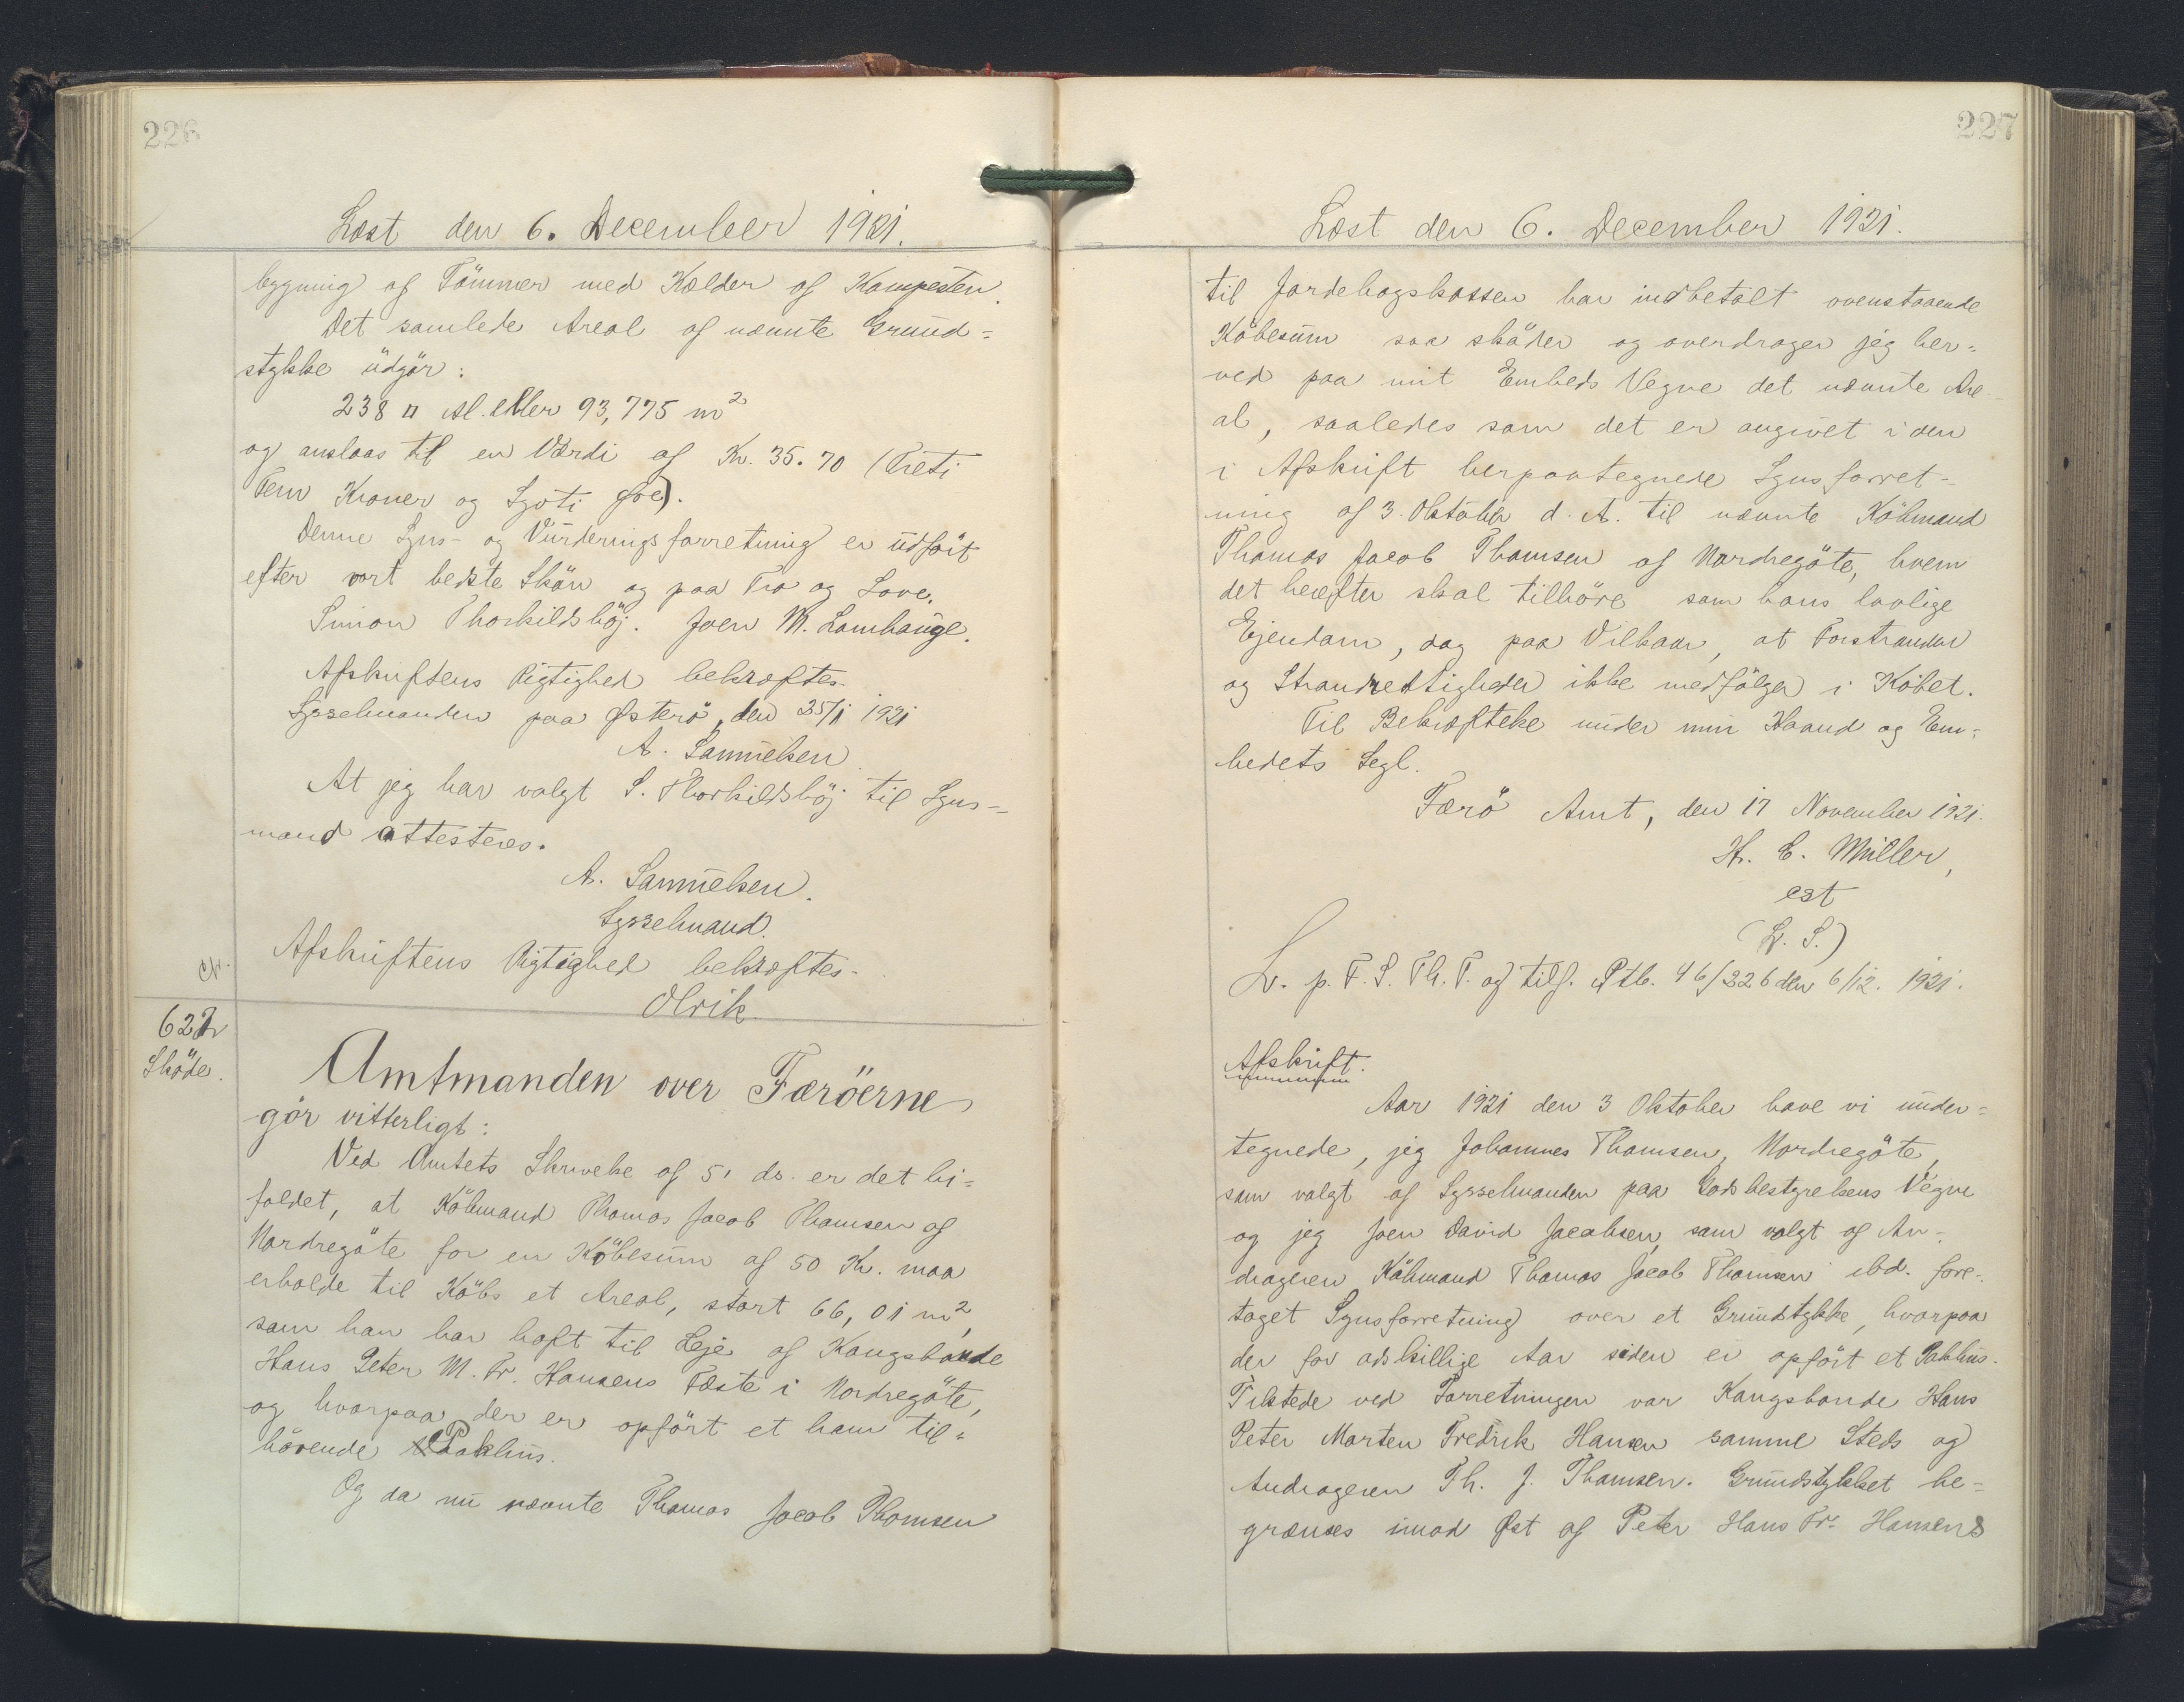 226
Læst den 6. December 1921.
bygning af Tömmer med Kælder af Kampesten.
Det samlede Areal af nævnte Grund=
stykke udgör:
238 □ Al. eller 93,775 m²
og anslaas til en Værdi af Kr. 35.70 (Treti
Fem Kroner og Syoti Øre).
Denne Syns- og Vurderingsforretning er udfört
efter vort bedste Skön og paa Tro og Love.
Simon Thorkildshöj. Joen M. Lamhauge.
Afskriftens Rigtighed bekræftes.
Sysselmanden paa Østerö, den 25/1 1921
A. Samuelsen
At jeg har valgt S. Thorkildshöj til Syns=
mand attesteres.
A. Samuelsen.
Sysselmand.
Afskriftens Rigtighed bekræftes.
Olrik
622
Sköde.
Amtmanden over Færöerne
gör vitterligt:
Ved Amtets Skrivelse af 5' ds. er det bi=
faldet, at Köbmand Thomas Jacob Thomsen af
Nordregöte for en Köbesum af 50 Kr. maa
erholde til Köbs et Areal, stort 66,01 m²,
som han har haft til Leje af Kongsbonde
Hans Peter M. Fr. Hansens Fæste i Nordregöte,
og hvorpaa der er opfört et ham til=
hörende Pakhus.
Og da nu nævnte Thomas Jacob Thomsen
227
Læst den 6. December 1921.
til Jordebogskassen har indbetalt ovenstaaende
Köbesum saa sköder og overdrager jeg her=
ved paa mit Embeds Vegne det nævnte Are=
al, saaledes som det er angivet i den
i Afskrift herpaategnede Synsforret=
ning af 3. Oktober d. A. til nævnte Köbmand
Thomas Jacob Thomsen af Nordregöte, hvem
det herefter skal tilhöre som hans lovlige
Ejendom, dog paa Vilkaar, at Forstranden
og Strandrettigheder ikke medfölger i Köbet.
Til Bekræftelse under min Haand og Em=
bedets Segl.
Færö Amt, den 17 November 1921.
H. C. Müller,
cst
(L. S.)
L. p. F. S. Th. T. og tilf. Ptb. 46/326 den 6/12. 1921.
Afskrift.
Aar 1921 den 3 Oktober have vi under=
tegnede, jeg Johannes Thomsen, Nordregöte,
som valgt af Sysselmanden paa Godsbestyrelsens Vegne
og jeg Joen David Jacobsen, som valgt af An=
drageren Köbmand Thomas Jacob Thomsen ibd. fore=
taget Synsforretning over et Grundstykke, hvorpaa
der for adskillige Aar siden er opfört et Pakhus.
Tilstede ved Forretningen var Kongsbonde Hans
Peter Morten Fredrik Hansen samme Steds og
Andrageren Th. J. Thomsen. Grundstykket be=
grænses imod Øst af Peter Hans Fr. Hansens